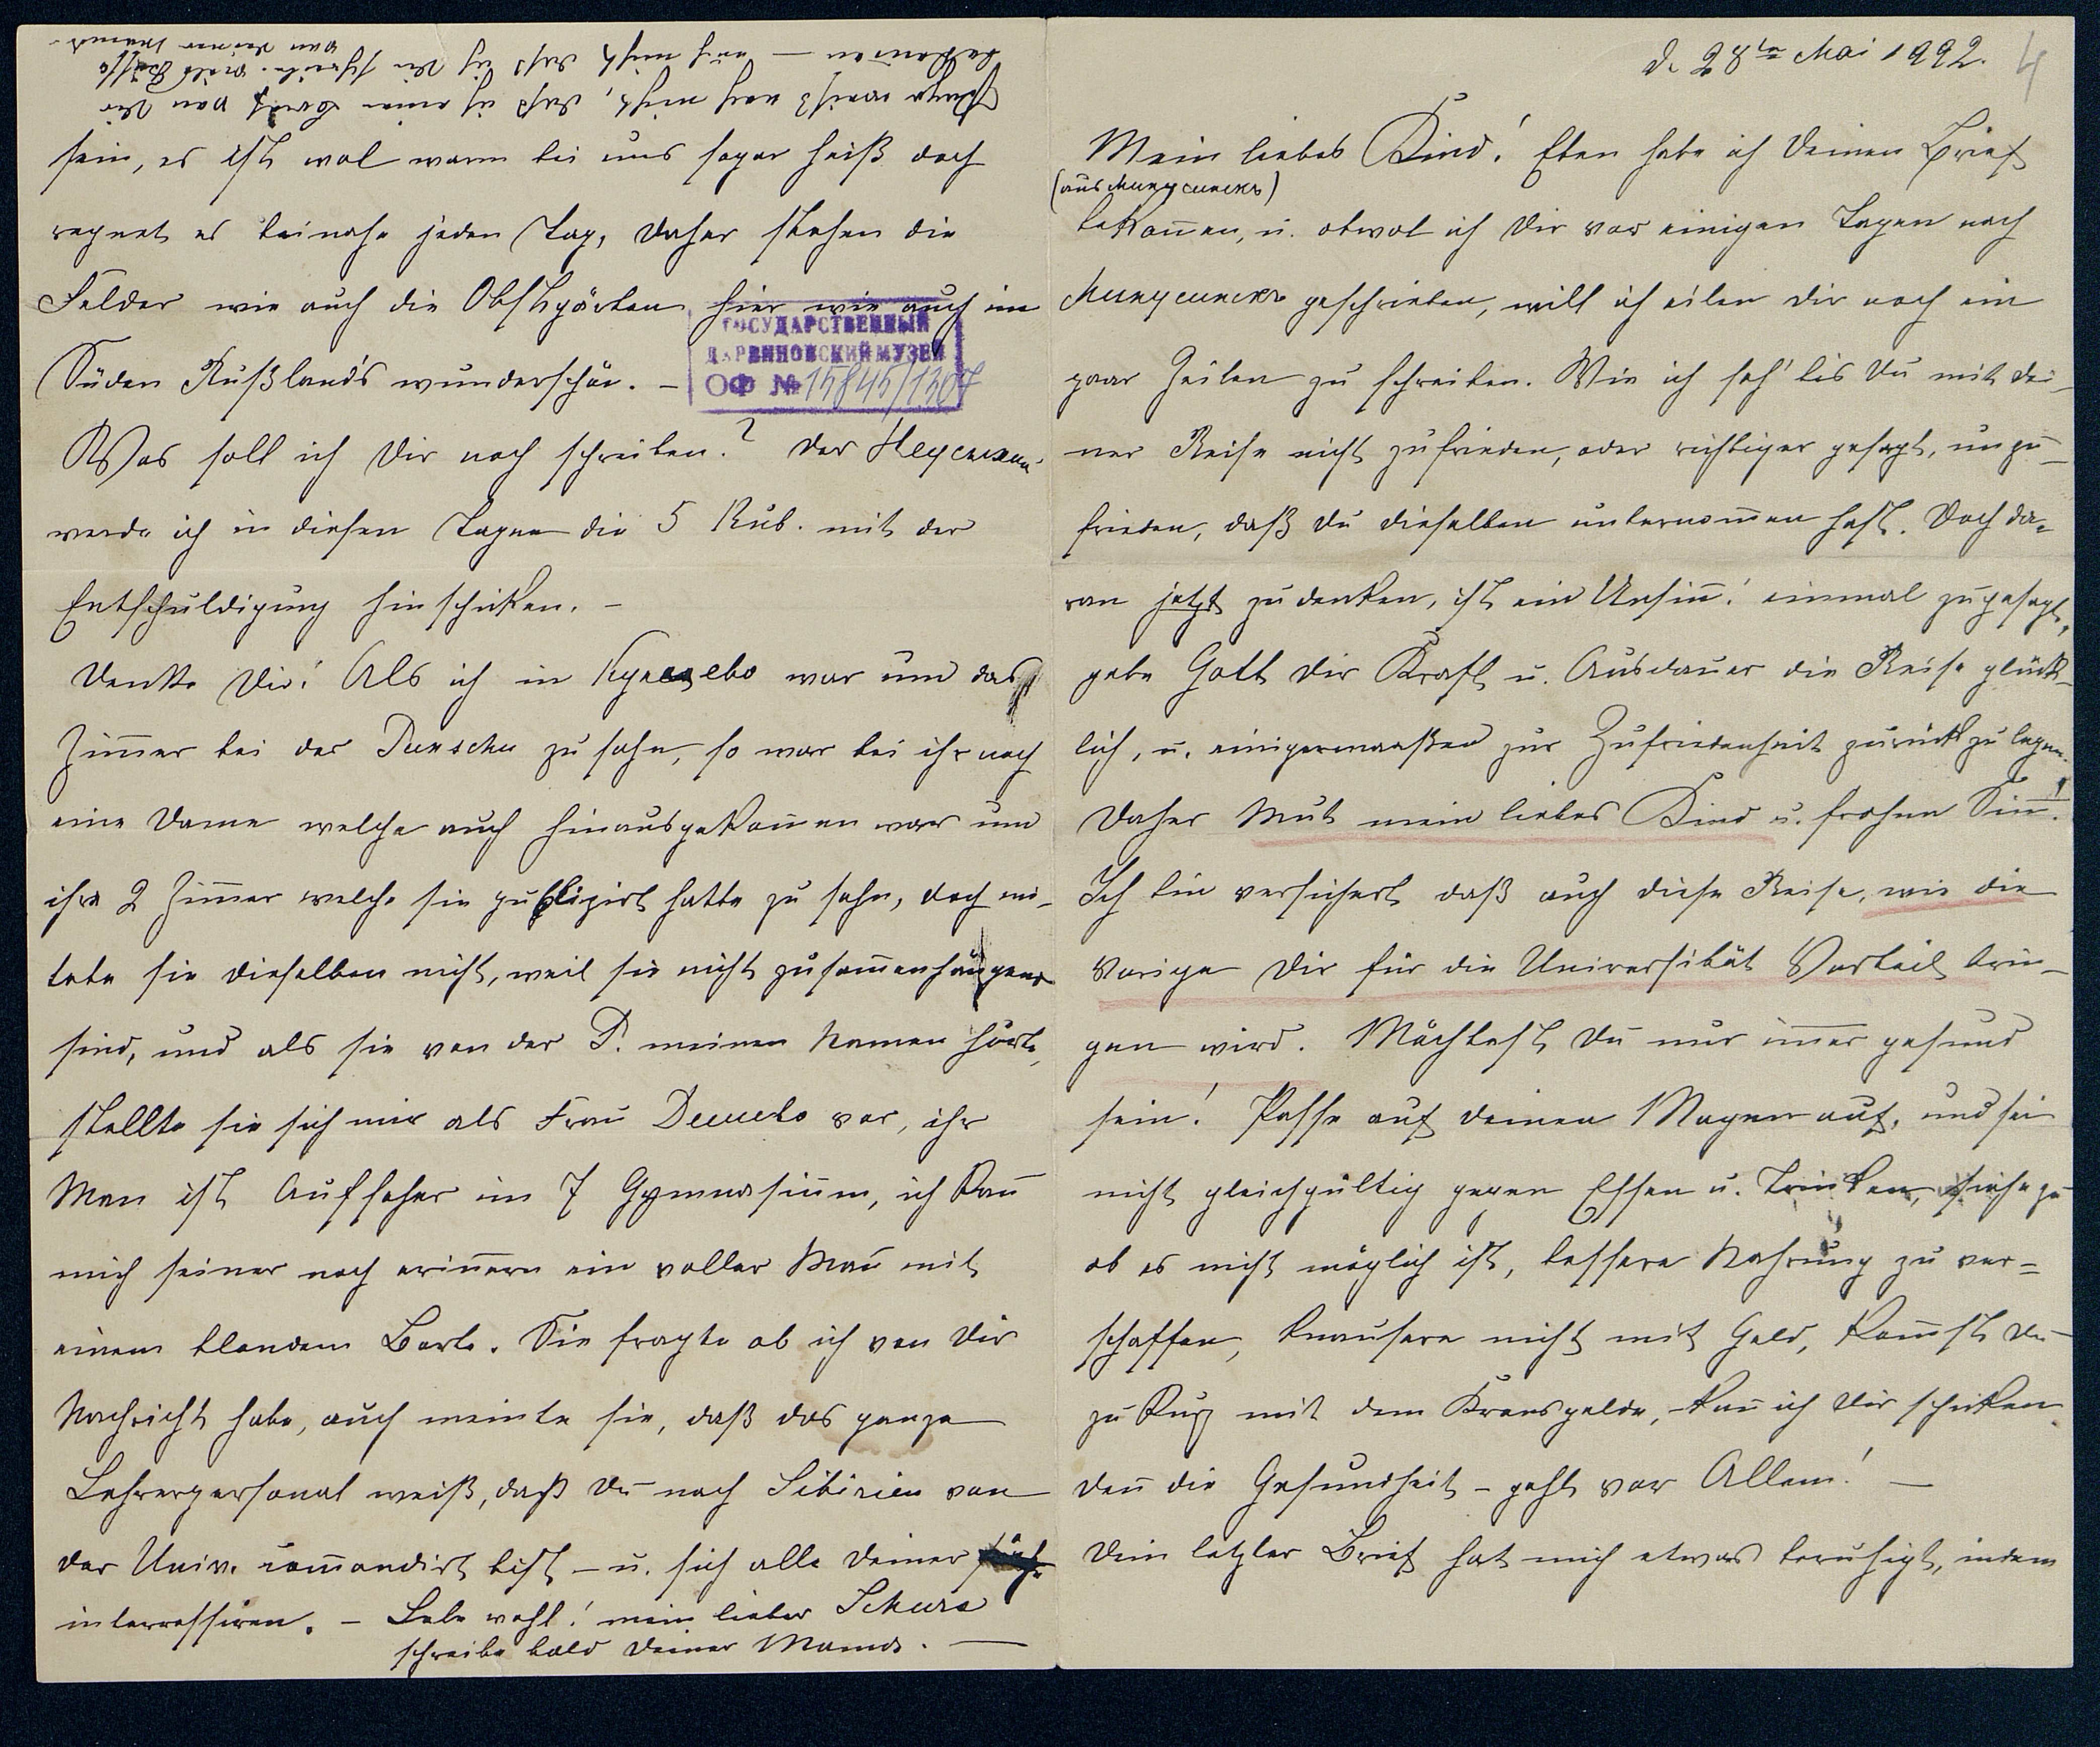 d. 28ten Mai 1892.
4
Mein liebes Kind! Eben habe ich Deinen Brief
(aus Минусинскъ)
bekom̄en, u. obwol ich Dir vor einigen Tagen nach
Минусинскъ geschrieben, will ich eilen Dir noch ein
paar Zeilen zu schreiben. Wie ich seh' bis Du mit Dei-
ner Reise nicht zufrieden, oder richtiger gesagt, unzu-
frieden, daß Du dieselben unternom̄en hast. Doch da-
ran jetzt zu denken, ist ein Unsin̄! einmal zugesagt,
gebe Gott Dir Kraft u. Ausdauer die Reise glück-
lich, u. einigermaaßen zur Zufriedenheit zurückzulegen.
Daher Mut mein liebes Kind u. frohen Sin̄!
Ich bin versichert daß auch diese Reise, wie die
Vorige Dir für die Universität Vorteil brin-
gen wird. Möchtest Du nur im̄er gesund
sein! Passe auf Deinen Magen auf, und sei
nicht gleichgültig gegen Essen u. Trinken, siehe zu
ob es nicht möglich ist, bessere Nahrung zu ver=
schaffen, knausere nicht mit Geld, kom̄st Du
zu kurz mit dem Kronsgelde, – kan̄ ich Dir schicken
den̄ die Gesundheit – geht vor Allem! —
Dein letzter Brief hat mich etwas beruhigt, indem
weiß noch nicht, daß ich einen Brief von Dir
bekom̄en — auch nicht daß ich Dir schreibe. Viele Küsse
von Deiner Mama.
sein, es ist wol warm bei uns sogar heiß doch
regnet es beinahe jeden Tag, daher stehen die
Felder wie auch die Obstgärten hier wie auch im
Süden Rußland's wunderschön. –
ГОСУДАРСТВЕННЫЙ
ДАРВИНОВСКИЙ МУЗЕЙ
ОФ № 15845/1307
Was soll ich Dir noch schreiben? Der
werde ich in diesen Tagen die 5 Rub. mit der
Entschuldigung hinschicken. –
Denke Dir! Als ich in war um das
Zim̄er bei der Dunscha zu sehn, so war bei ihr noch
eine Dame welche auch hinausgekom̄en war um
ihre 2 Zim̄er welche sie publizirt hatte zu sehn, doch mi-
tete sie dieselben nicht, weil sie nicht zusam̄enhängend
sind, und als sie von der D. meinen Namen hörte,
stellte sie sich mir als Frau vor, ihr
Man ist Aufseher im 7 Gymnasium, ich kan̄
mich seiner noch erin̄ern ein voller Man̄ mit
einem blondem Barte. Sie fragte ob ich von Dir
Nachricht habe, auch meinte sie, daß das ganze
Lehrerpersonal weiß, daß Du nach Sibirien von
der Univ. com̄andirt bist – u. sich alle Deiner
interressiren. – Lebe wohl! mein lieber Schura
schreibe bald Deiner Mama. —